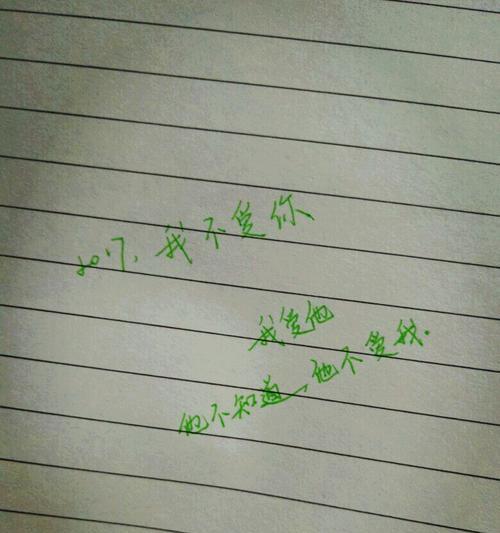 2017，我不爱你
我爱他
他不知道，他不爱我.